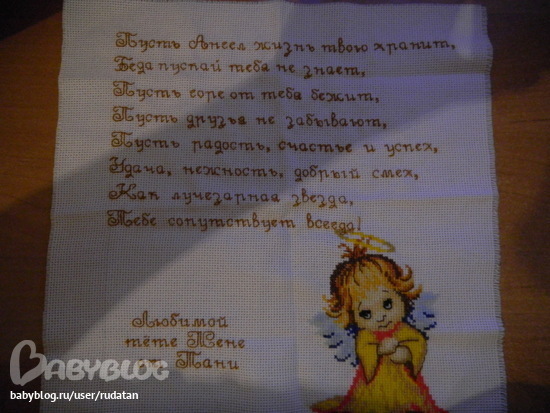 Пусть Ангел жизнь твою хранит,
Беда пускай тебя не знает,
Пусть горе от тебя бежит,
Пусть друзья не забывают,
Пусть радость, счастье и успех,
Удача, нежность, добрый смех,
Как лучезарная звезда,
Тебе сопутствует всегда!
Любимой
тёте Жене
от Тани
BABYBLOG
babyblog.ru/user/rudatan